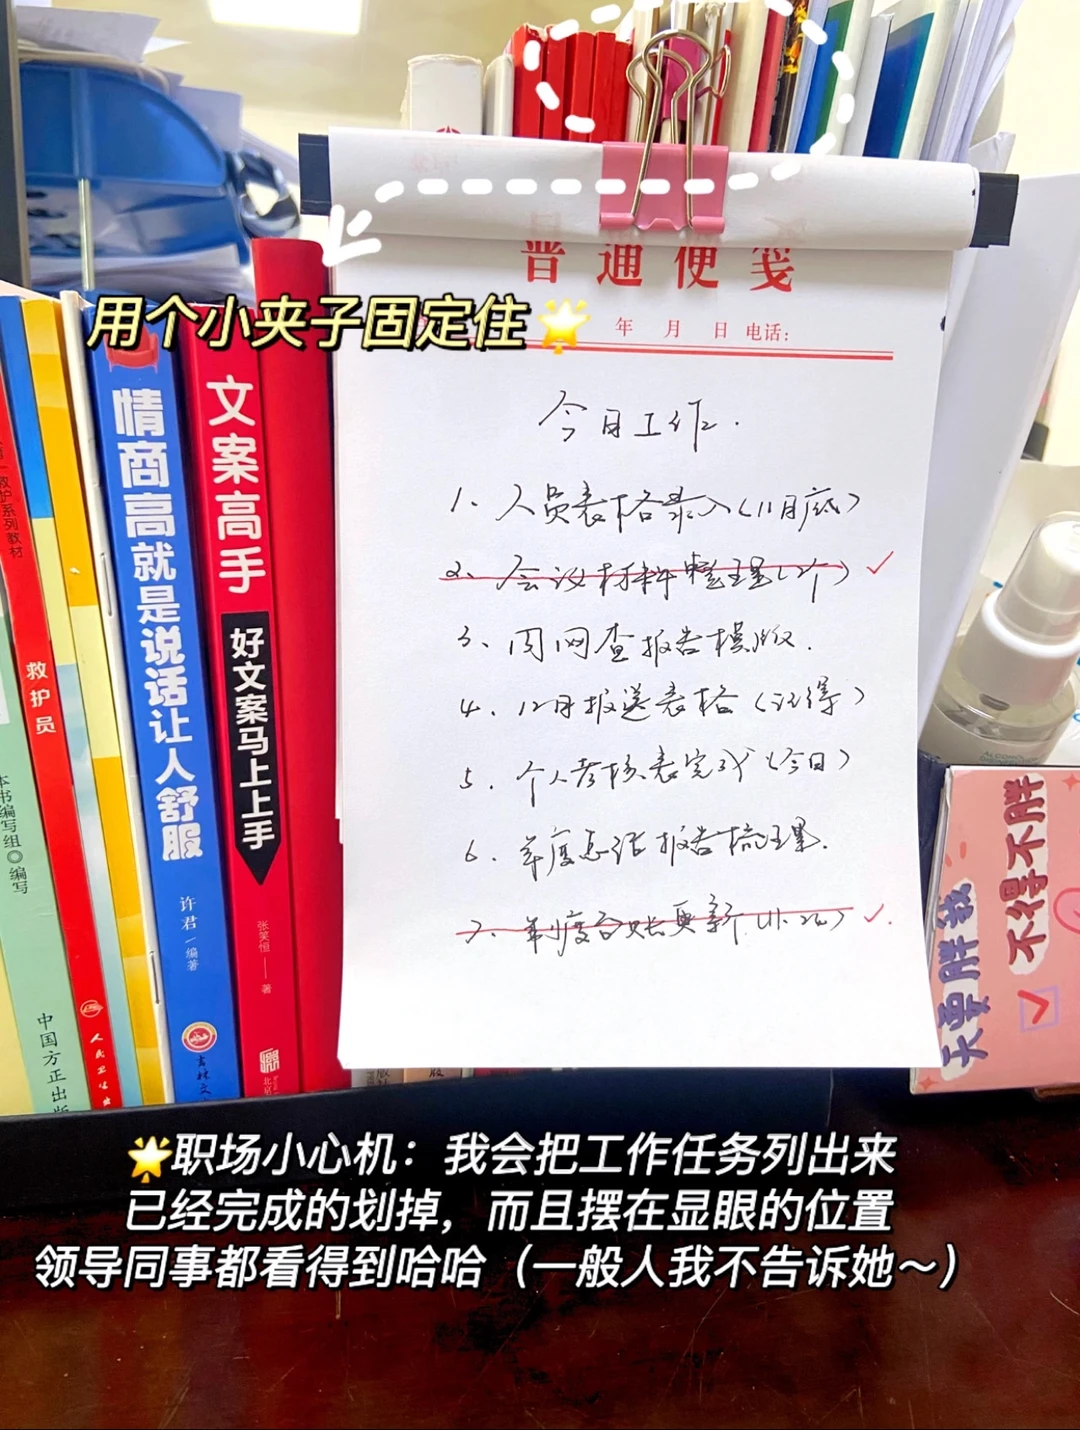 普通便笺
年 月 日 电话:
用个小夹子固定住
今日工作.
1、人员表格录入(11月底)
2、会议材料整理(2个)
3、内网查报告模版.
4、12月报送表格(记得)
5、个人考核表完成(今日)
6、年度总结报告梳理.
7、制度台账更新
情商高就是说话让人舒服
许君/编著
吉林文
文案高手
好文案马上上手
张笑恒——著
北京
救护员
救护系列教材
人民卫生出
本书编写组◎编写
中国方正出版
天要胖我
不得不胖
ALCOHOL
职场小心机：我会把工作任务列出来
已经完成的划掉，而且摆在显眼的位置
领导同事都看得到哈哈（一般人我不告诉她～）